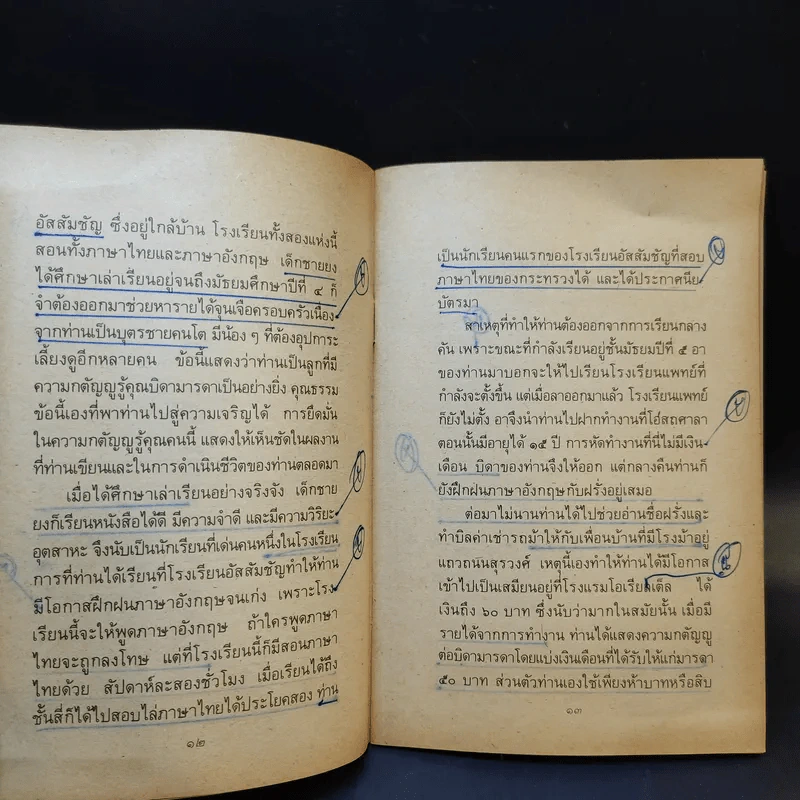 อัสสัมชัญ ซึ่งอยู่ใกล้บ้าน โรงเรียนทั้งสองแห่งนี้
สอนทั้งภาษาไทยและภาษาอังกฤษ เด็กชายยง
ได้ศึกษาเล่าเรียนอยู่จนถึงมัธยมศึกษาปีที่ ๔ ก็
จำต้องออกมาช่วยหารายได้จุนเจือครอบครัวเนื่อง
จากท่านเป็นบุตรชายคนโต มีน้อง ๆ ที่ต้องอุปการะ
เลี้ยงดูอีกหลายคน ข้อนี้แสดงว่าท่านเป็นลูกที่มี
ความกตัญญูรู้คุณบิดามารดาเป็นอย่างยิ่ง คุณธรรม
ข้อนี้เองที่พาท่านไปสู่ความเจริญได้ การยึดมั่น
ในความกตัญญูรู้คุณคนนี้ แสดงให้เห็นชัดในผลงาน
ที่ท่านเขียนและในการดำเนินชีวิตของท่านตลอดมา
เมื่อได้ศึกษาเล่าเรียนอย่างจริงจัง เด็กชาย
ยงก็เรียนหนังสือได้ดี มีความจำดี และมีความวิริยะ
อุตสาหะ จึงนับเป็นนักเรียนที่เด่นคนหนึ่งในโรงเรียน
การที่ท่านได้เรียนที่โรงเรียนอัสสัมชัญทำให้ท่าน
มีโอกาสฝึกฝนภาษาอังกฤษจนเก่ง เพราะโรง
เรียนนี้จะให้พูดภาษาอังกฤษ ถ้าใครพูดภาษา
ไทยจะถูกลงโทษ แต่ที่โรงเรียนนี้ก็มีสอนภาษา
ไทยด้วย สัปดาห์ละสองชั่วโมง เมื่อเรียนได้ถึง
ชั้นสี่ก็ได้ไปสอบไล่ภาษาไทยได้ประโยคสอง ท่าน
๑๒
เป็นนักเรียนคนแรกของโรงเรียนอัสสัมชัญที่สอบ
ภาษาไทยของกระทรวงได้ และได้ประกาศนีย
บัตรมา
สาเหตุที่ทำให้ท่านต้องออกจากการเรียนกลาง
คัน เพราะขณะที่กำลังเรียนอยู่ชั้นมัธยมปีที่ ๕ อา
ของท่านมาบอกจะให้ไปเรียนโรงเรียนแพทย์ที่
กำลังจะตั้งขึ้น แต่เมื่อลาออกมาแล้ว โรงเรียนแพทย์
ก็ยังไม่ตั้ง อาจึงนำท่านไปฝากทำงานที่โอ๋สถศาลา
ตอนนั้นมีอายุได้ ๑๕ ปี การหัดทำงานที่นี่ไม่มีเงิน
เดือน บิดาของท่านจึงให้ออก แต่กลางคืนท่านก็
ยังฝึกฝนภาษาอังกฤษกับฝรั่งอยู่เสมอ
ต่อมาไม่นานท่านได้ไปช่วยอ่านชื่อฝรั่งและ
ทำบิลค่าเช่ารถม้าให้กับเพื่อนบ้านที่มีโรงม้าอยู่
แถวถนนสุรวงศ์ เหตุนี้เองทำให้ท่านได้มีโอกาส
เข้าไปเป็นเสมียนอยู่ที่โรงแรมโอเรียลเต็ล ได้
เงินถึง ๖๐ บาท ซึ่งนับว่ามากในสมัยนั้น เมื่อมี
รายได้จากการทำงาน ท่านได้แสดงความกตัญญู
ต่อบิดามารดาโดยแบ่งเงินเดือนที่ได้รับให้แก่มารดา
๕๐ บาท ส่วนตัวท่านเองใช้เพียงห้าบาทหรือสิบ
๑๓